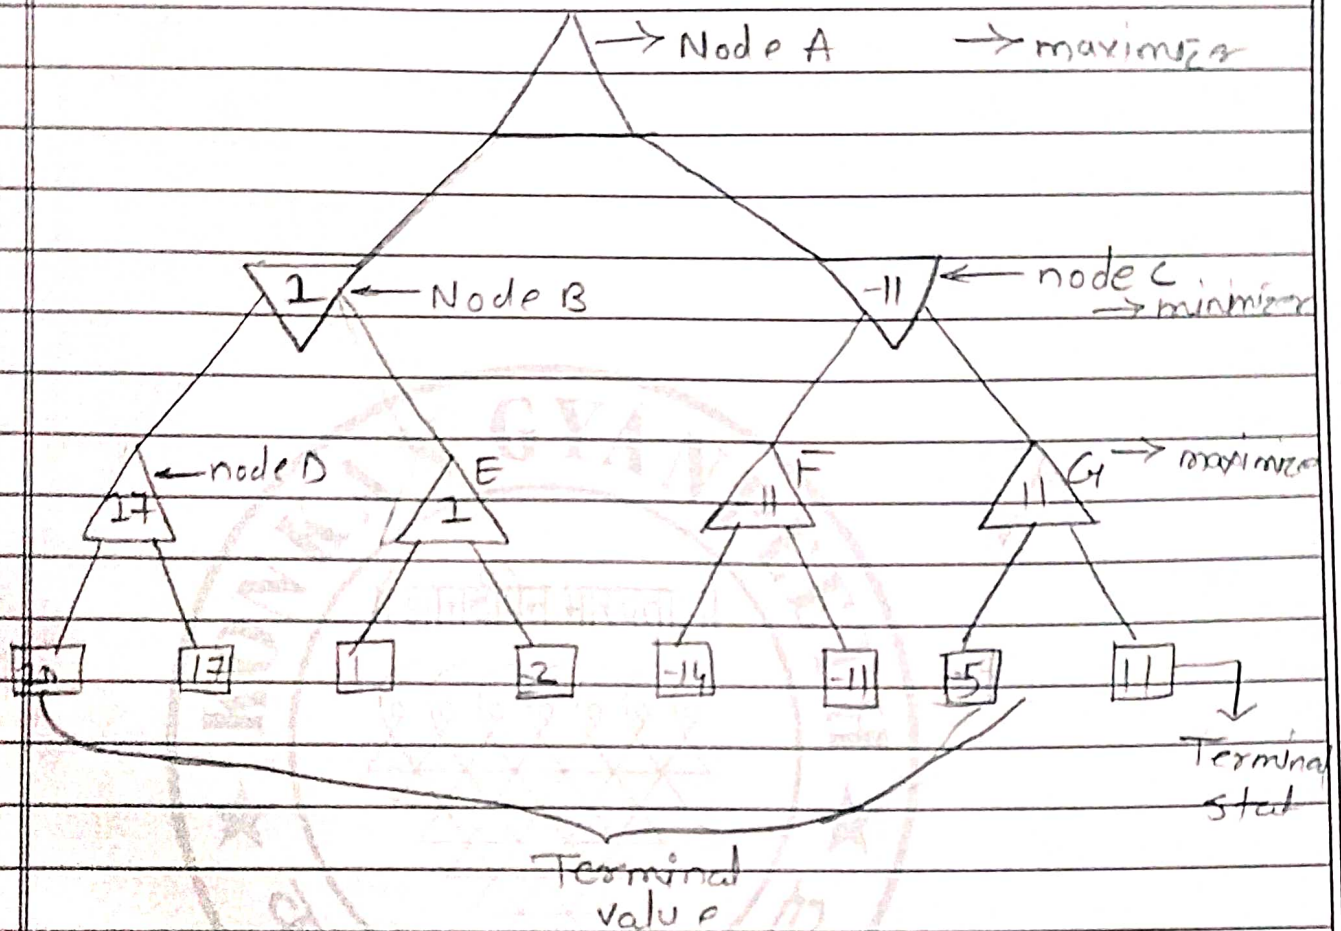 → Node A → maximizer
1 ← Node B
-11 ← node C
→ minimizer
← node D E F G → maximize
17 1 -11 11
17 1 -2 -14 -11 -5 11
Terminal
stat
Terminal
value